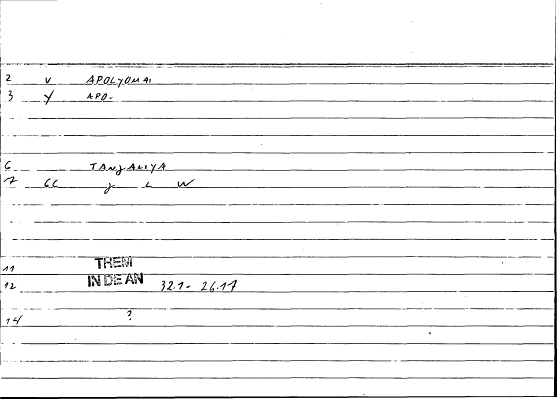 2 V APOLYOMAI
3 Y APO-
6 TANZALIYA
7 CC y L W
11 THEM
12 IN DE AN 32.1- 26.17
14 ?